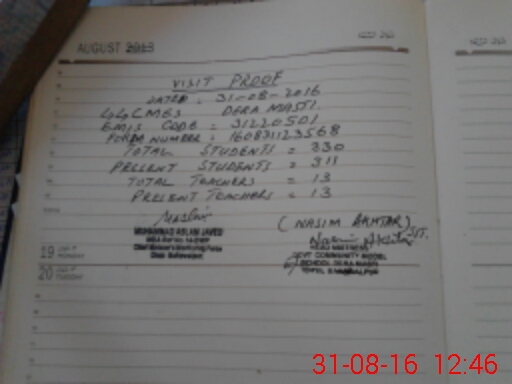 AUGUST 2013
VISIT PROOF
DATE : 31-08-2016
GGCMES DERA MASTI.
EMIS CODE = 31220501
NUMBER : 160831123568
TOTAL STUDENTS = 330
PRESENT STUDENTS = 311
TOTAL TEACHERS = 13
PRESENT TEACHERS = 13
(NASIM AKHTAR)
MUHAMMAD ASLAM JAVED
HEAD MISTRESS
GOVT COMMUNITY MODEL
SCHOOL DERA MASTI
19
MONDAY
20
TUESDAY
31-08-16 12:46